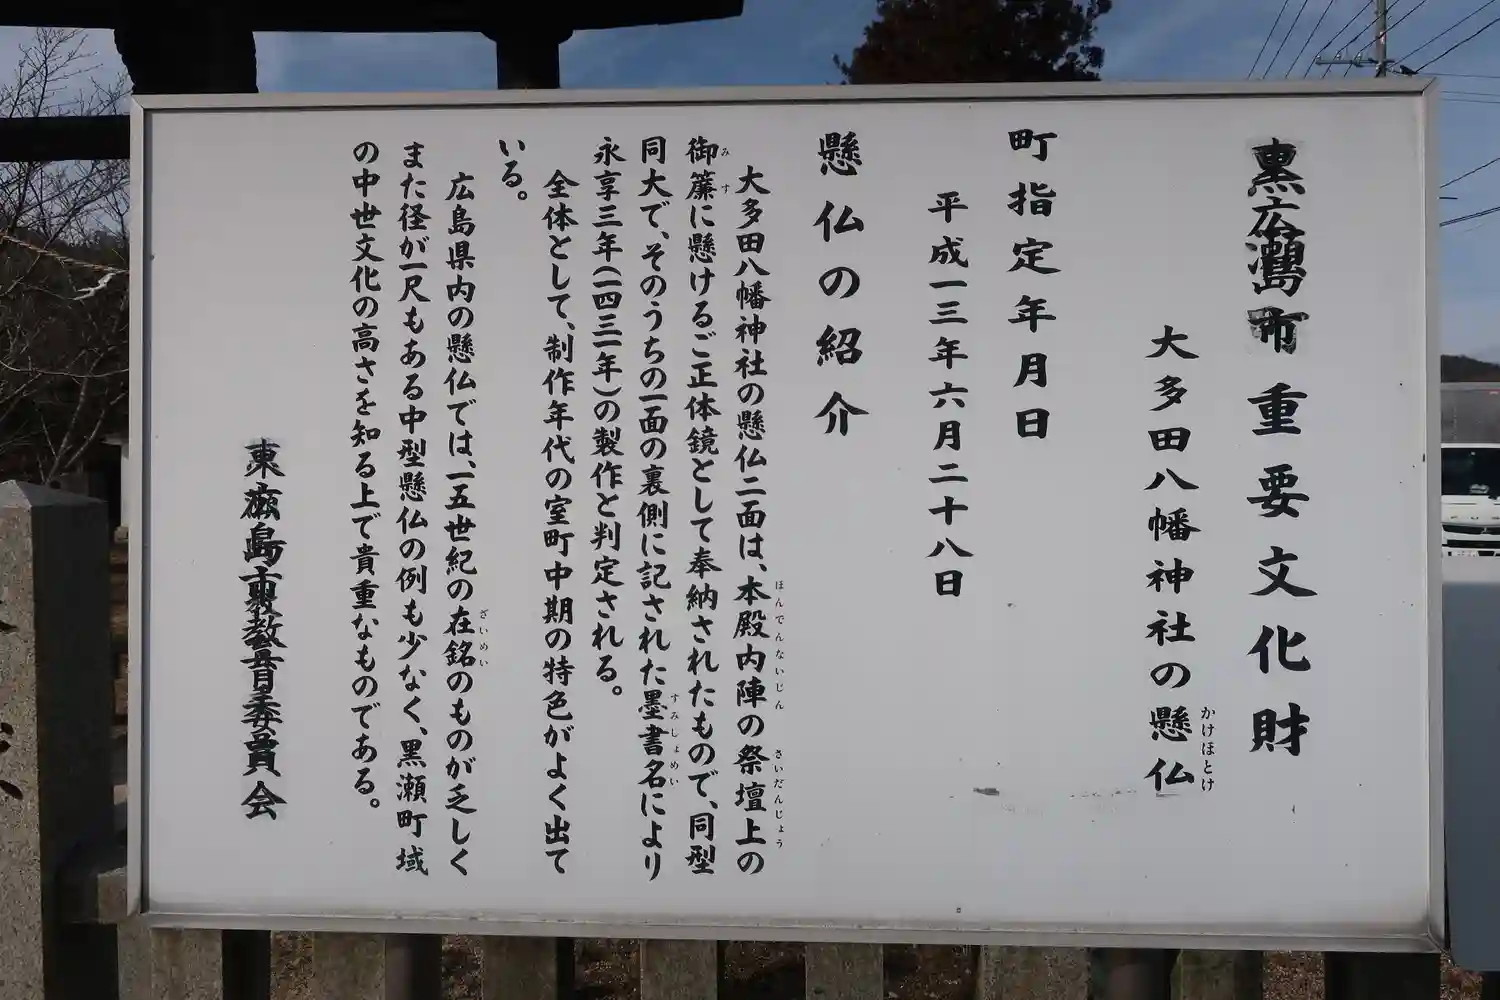 重要文化財
大多田八幡神社の懸仏
かけほとけ
町指定年月日
平成一三年六月二十八日
懸仏の紹介
大多田八幡神社の懸仏二面は、本殿内陣の祭壇上の
ほんでんないじん
さいだんじょう
御簾に懸けるご正体鏡として奉納されたもので、同型
みす
同大で、そのうちの一面の裏側に記された墨書名により
すみしょめい
永享三年(一四三一年)の製作と判定される。
全体として、制作年代の室町中期の特色がよく出て
いる。
広島県内の懸仏では、一五世紀の在銘のものが乏しく
ざいめい
また径が一尺もある中型懸仏の例も少なく、黒瀬町域
の中世文化の高さを知る上で貴重なものである。
委員会